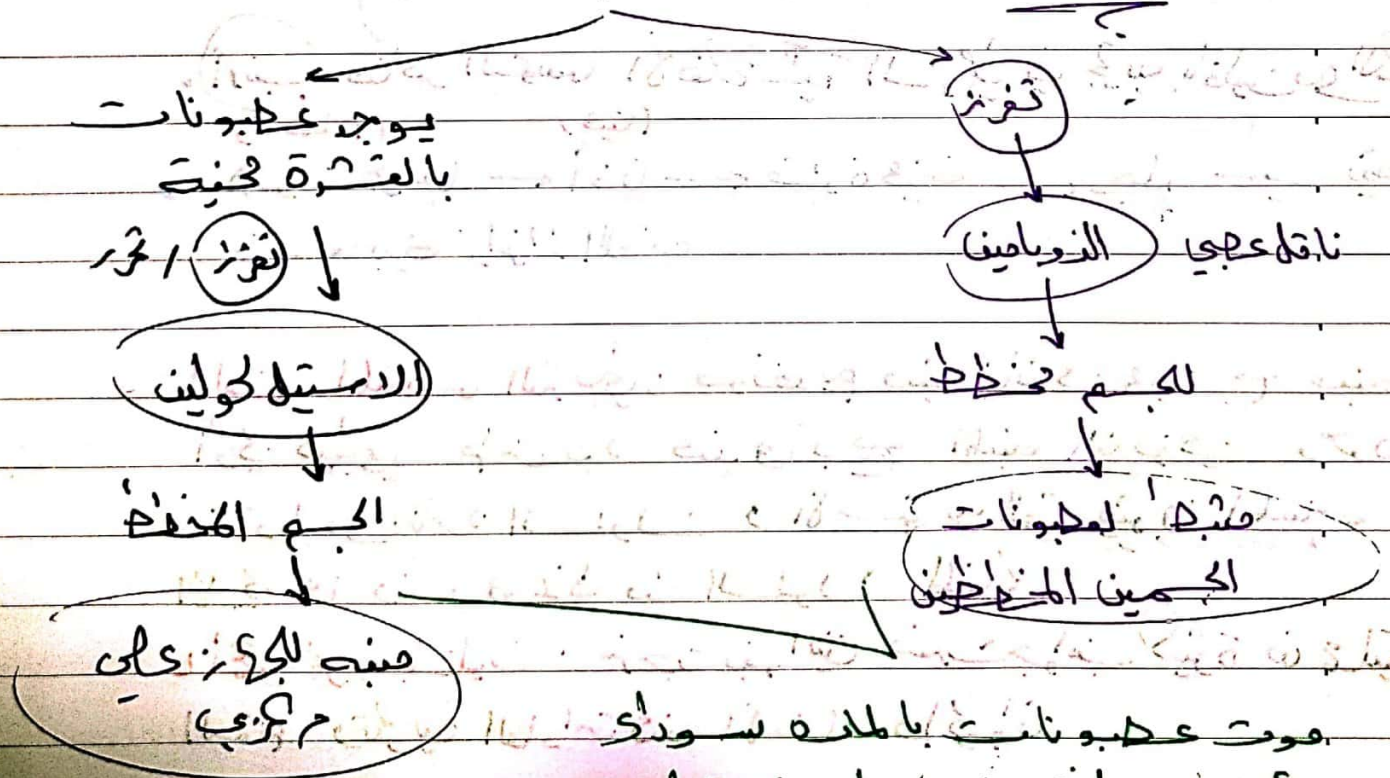 تفرز
ناقل عصبي الدوبامين
للجسم مخطط
مثبطاً لعصبونات
الجسمين المخططين
يوجد عصبونات
بالقشرة مخية
تفرز / تحرر
الاستيل كولين
الجسم المخطط
منبه للجهاز عصبي
مركزي
موت عصبونات بالمادة سوداء